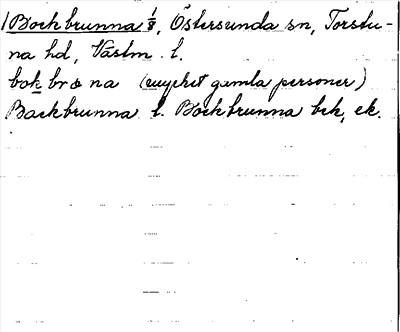 1 Bockbrunna 1/8, Östersunda sn, Torstu-
na hd, Västm. l.
bok br na (mycket gamla personer)
Backbrunna l. Bockbrunna bck, ek.